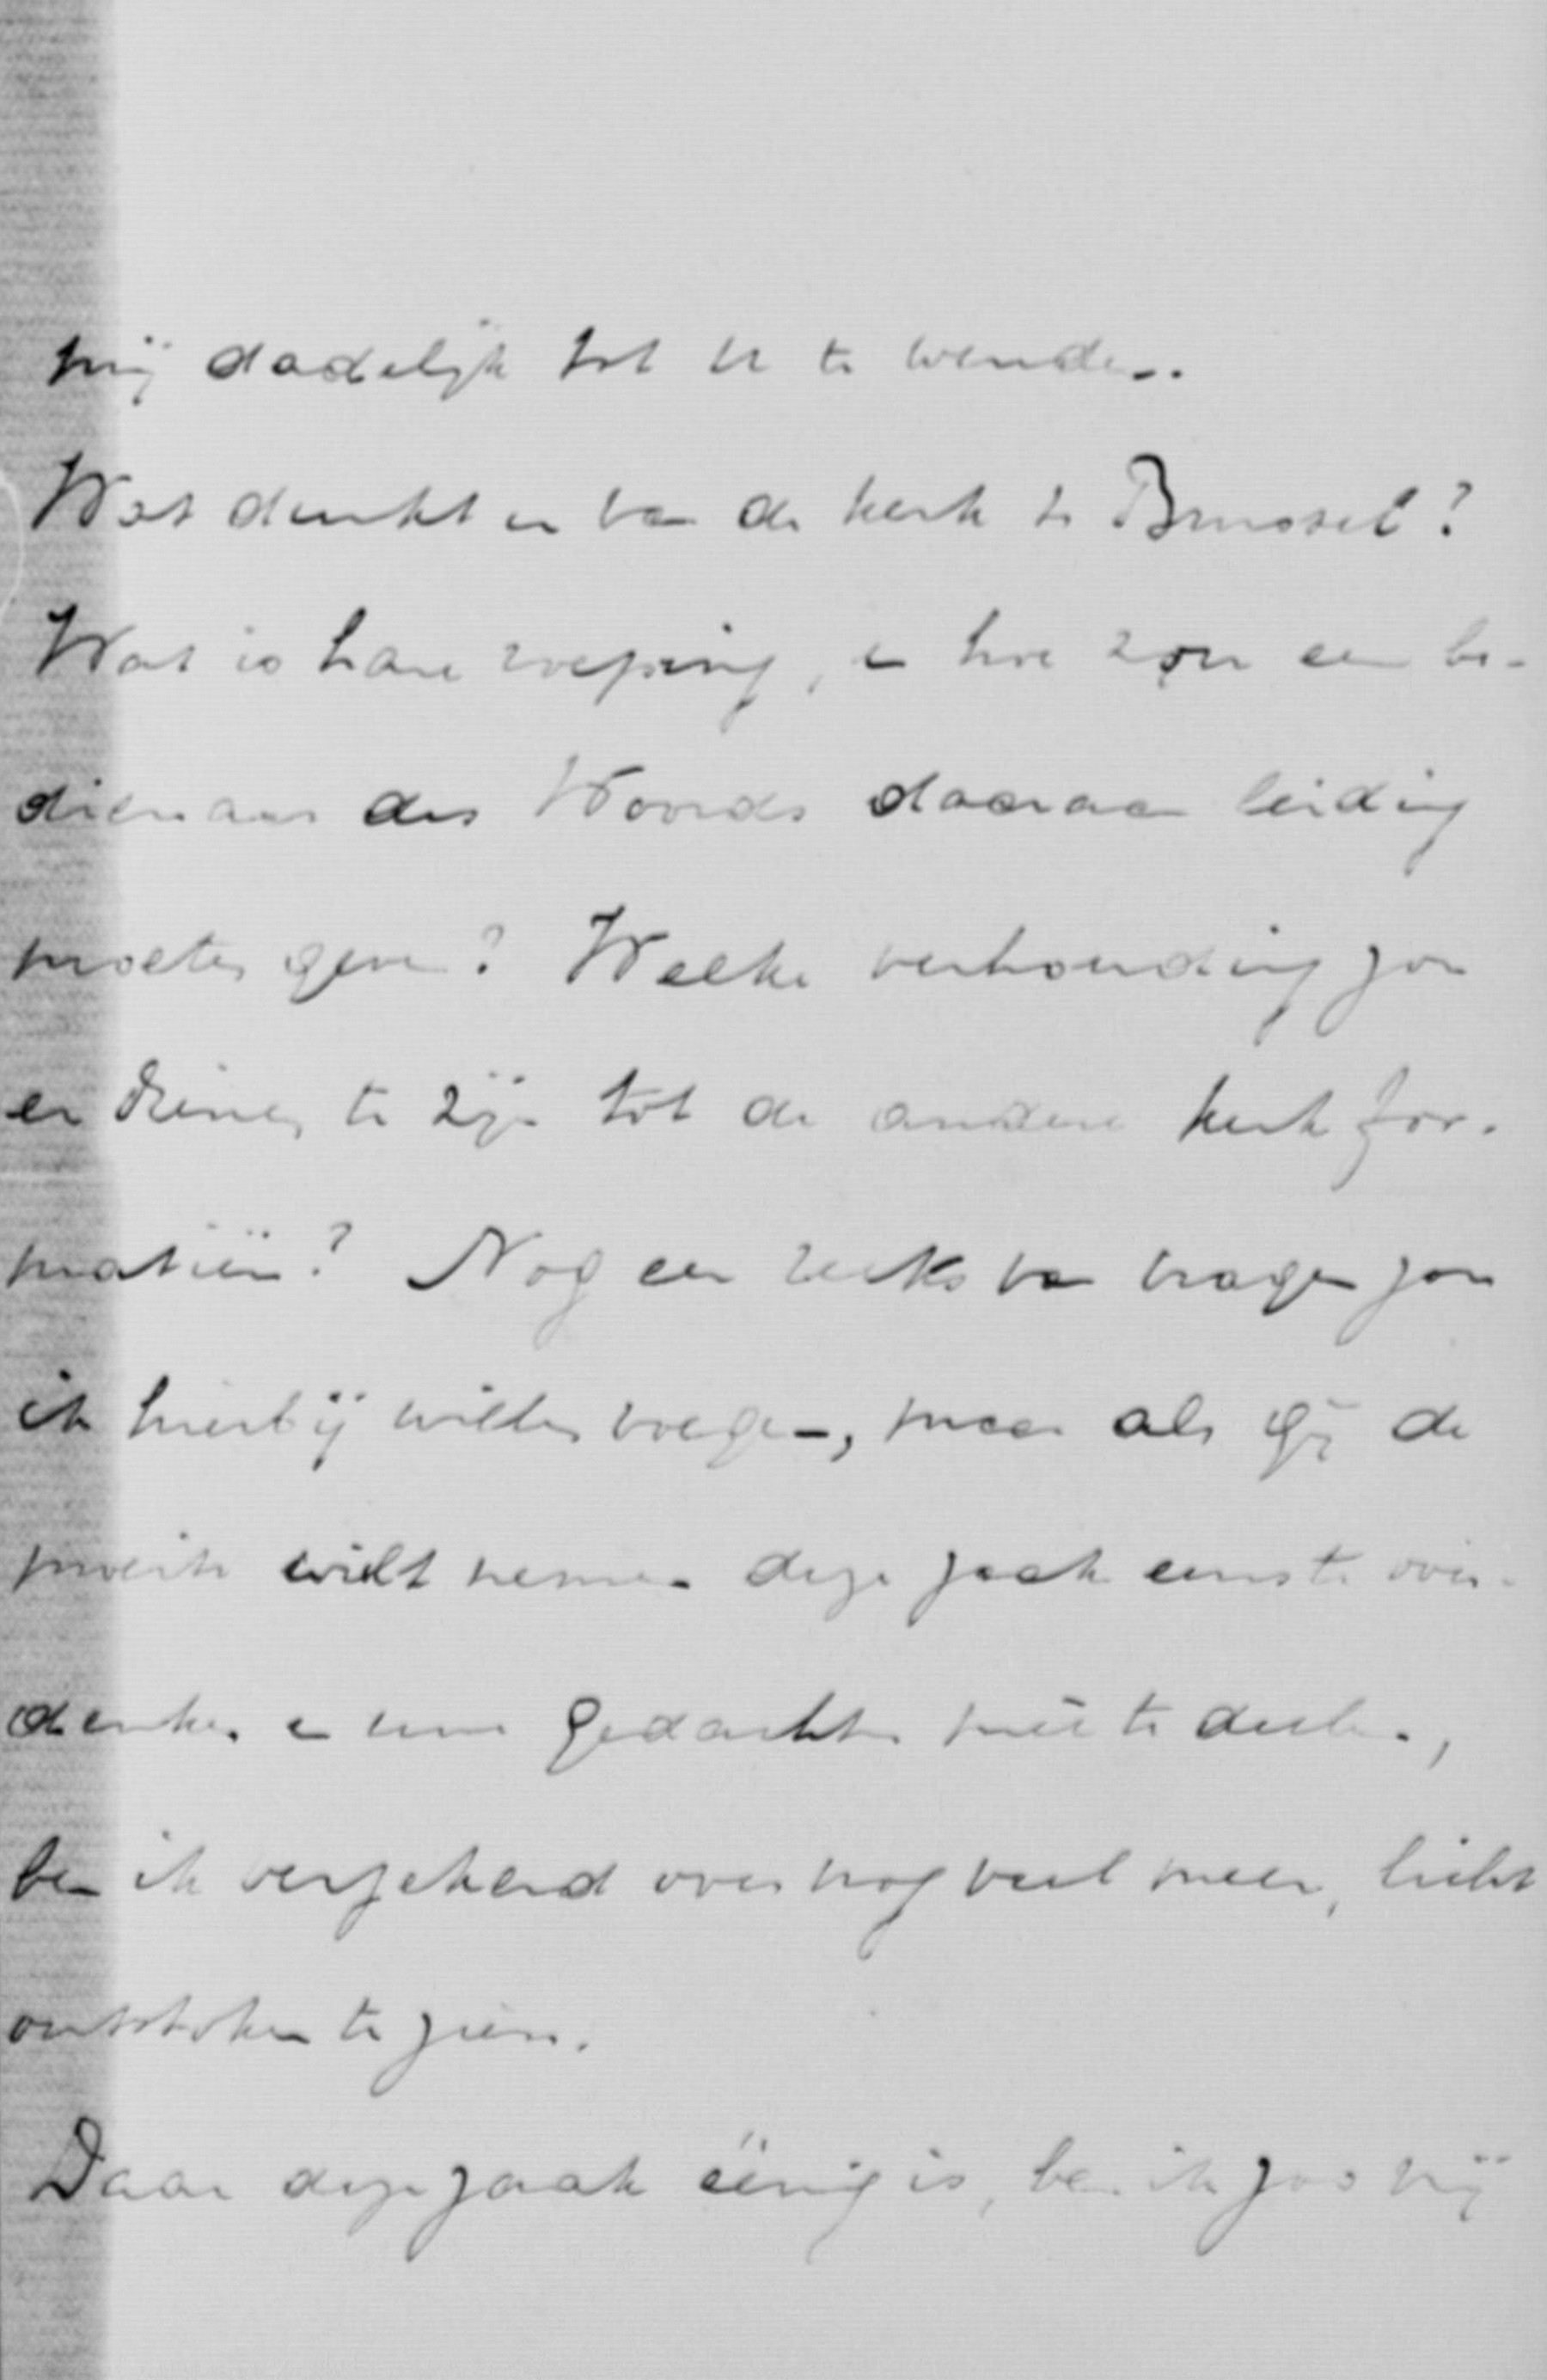 mij dadelijk tot U te wenden.
Wat denkt u van de kerk te Brussel?
Wat is hare roeping, en hoe zou een be-
dienaar des Woords daaraan leiding
moeten geven? Welke verhouding zou
er dienen te zijn tot de andere kerkfor-
matiën? Nog een reeks van vragen zou
ik hierbij willen voegen, maar als gij de
moeite wilt nemen deze zaak eens te over-
denken en uwe gedachten meê te deelen,
ben ik verzekerd over nog veel meer, licht
ontstoken te zien.
Daar deze zaak éénig is, ben ik zoo vrij